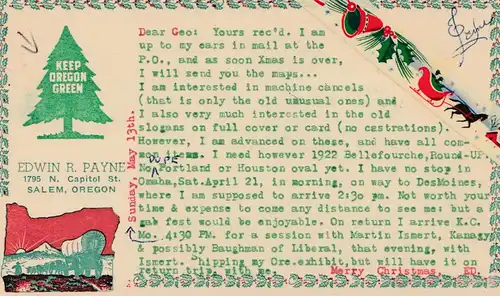 KEEP
OREGON
GREEN
EDWIN R. PAYNE
1795 N. Capitol St.
SALEM, OREGON
Dear Geo: Yours rec'd. I am
up to my ears in mail at the
P.O., and as soon Xmas is over,
I will send you the maps...
I am interested in machine cancels
(that is only the old unusual ones) and
I also very much interested in the old
slogans on full cover or card (no castrations).
However, I am advanced on these, and have all com-
mon items. I need however 1922 Bellefourche, Round-UP.
No Portland or Houston oval yet. I have no stop in
Omaha, Sat. April 21, in morning, on way to DesMoines,
where I am supposed to arrive 2:30 pm. Not worth your
time & expense to come any distance to see me: but a
gab fest would be enjoyable. On return I arrive K.C.
Mo. 4:30 PM. for a session with Martin Ismert, Kanagy
& possibly Baughman of Liberal, that evening, with
Ismert. Shipping my Ore. exhibit, but will have it on
return trip, with me. Merry Christmas, ED.
Sunday, May 13th.